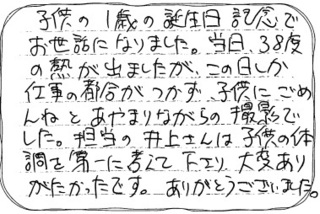 子供の1歳の誕生日記念で
お世話になりました。当日、38度
の熱が出ましたが、この日しか
仕事の都合がつかず、子供にごめ
んねとあやまりながらの撮影で
した。担当の井上さんは子供の体
調を第一に考えて下さり、大変あり
がたかったです。ありがとうございました。